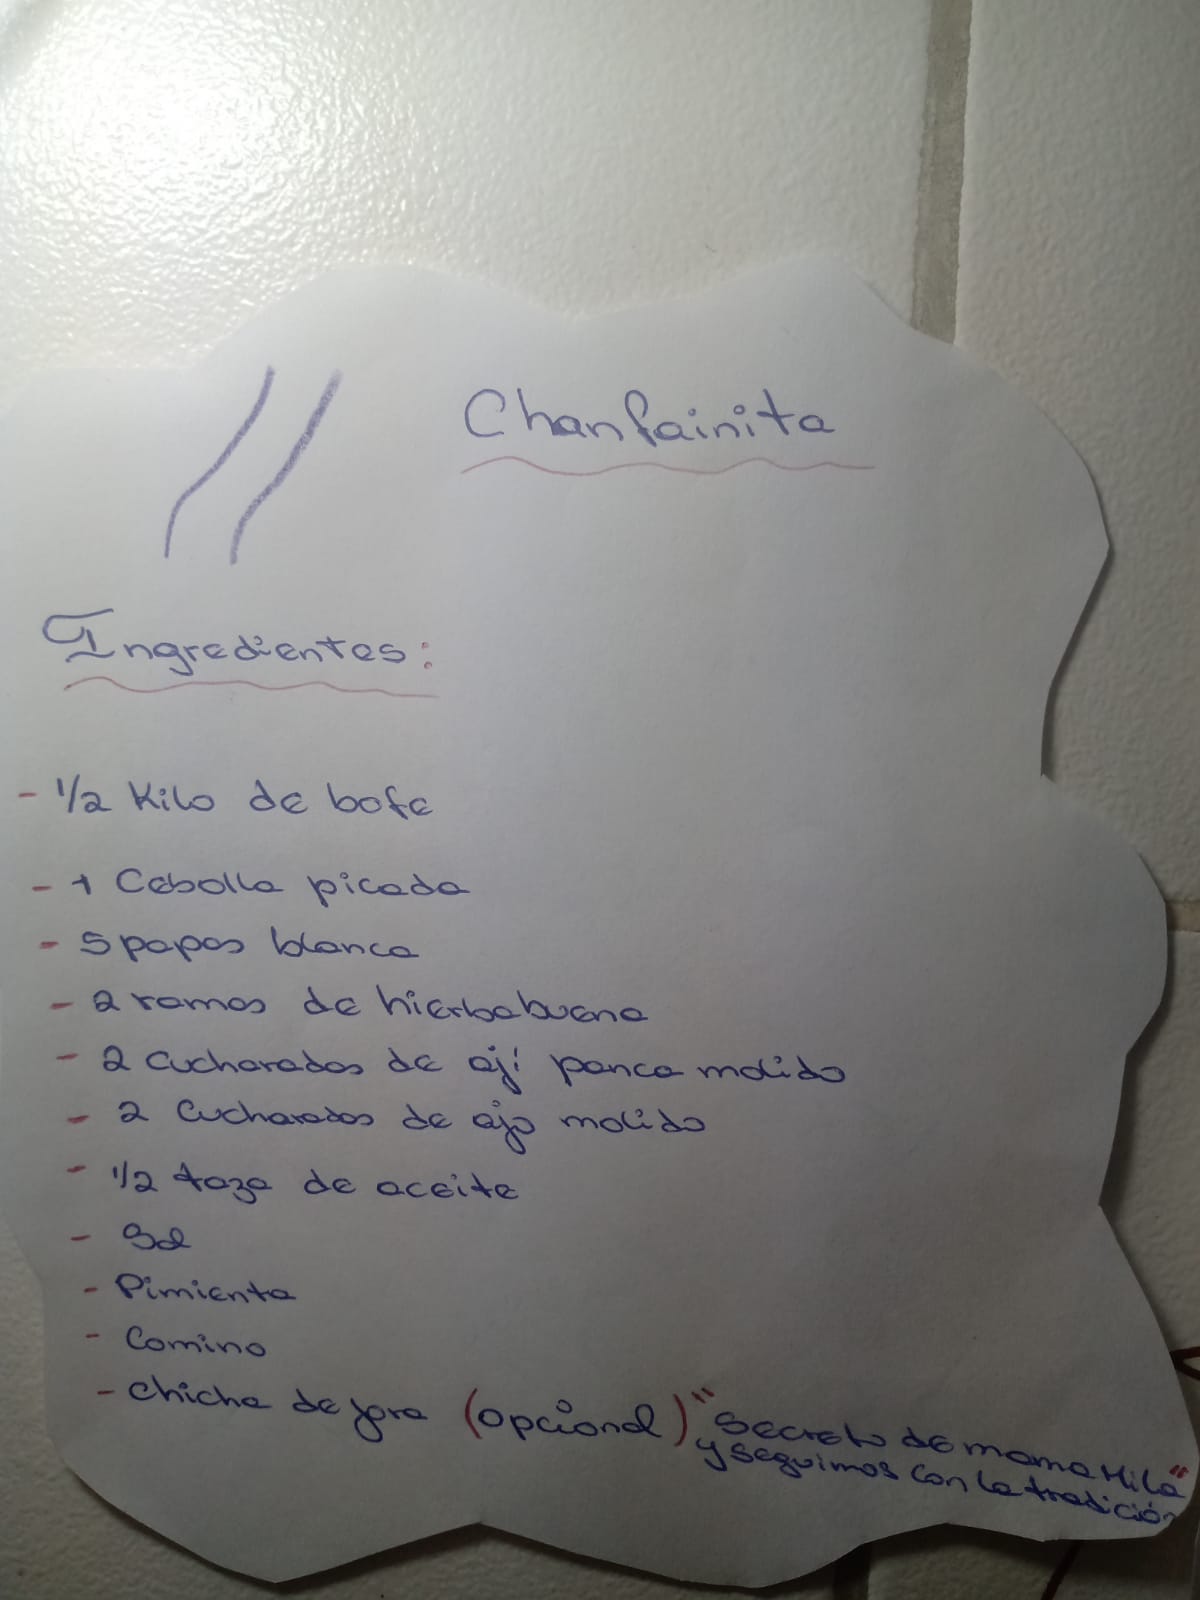 Chanfainita
Ingredientes:
- 1/2 Kilo de bofe
- 1 Cebolla picada
- 5 papas blanca
- 2 ramas de hierbabuena
- 2 cucharadas de ají panca molido
- 2 Cucharadas de ajo molido
- 1/2 taza de aceite
- Sal
- Pimienta
- Comino
- chicha de jora (opcional) "Secreto de mama Hila"
y seguimos con la tradición